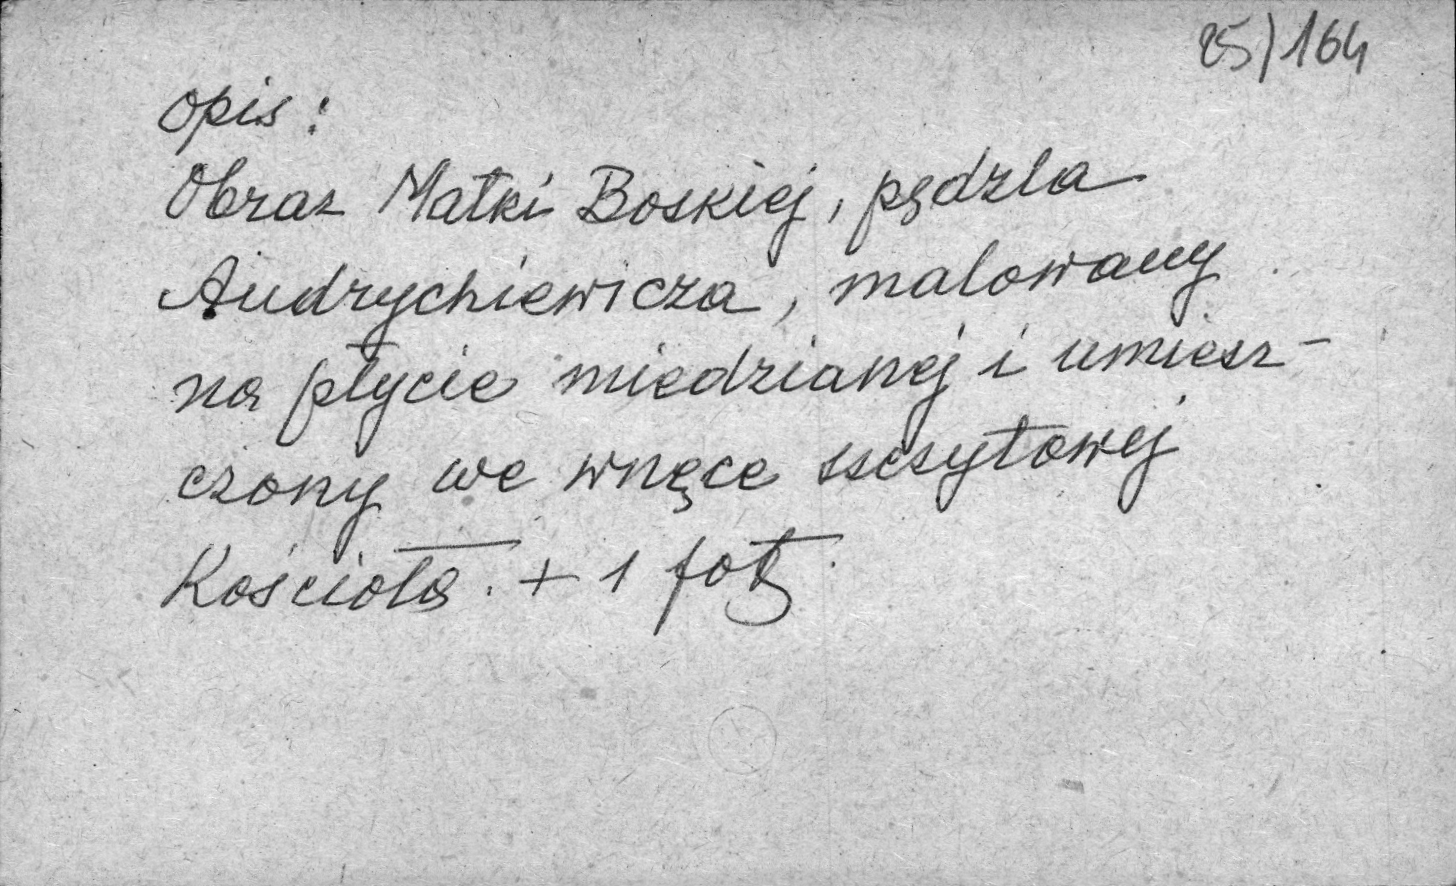 25)164
Opis:
Obraz Matki Boskiej, pędzla
Andrychiewicza, malowany
na płycie miedzianej i umiesz-
czony we wnęce szczytowej
Kościoła. + 1 fot.